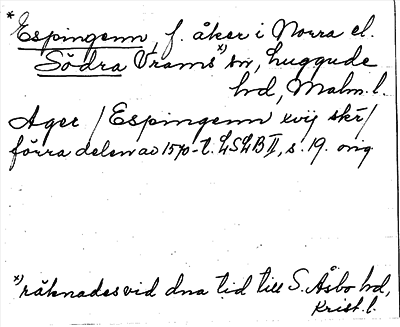 * Espingenn, f. åker i Norra el.
Södra Vrams *) sn, Luggude
hd, Malm. l.
Ager / Espingenn xvij skr /
förra delen av 1570-t. LSLB II, s. 19. orig
*) räknades vid dna tid till S. Åsbo hd,
Krist. l.